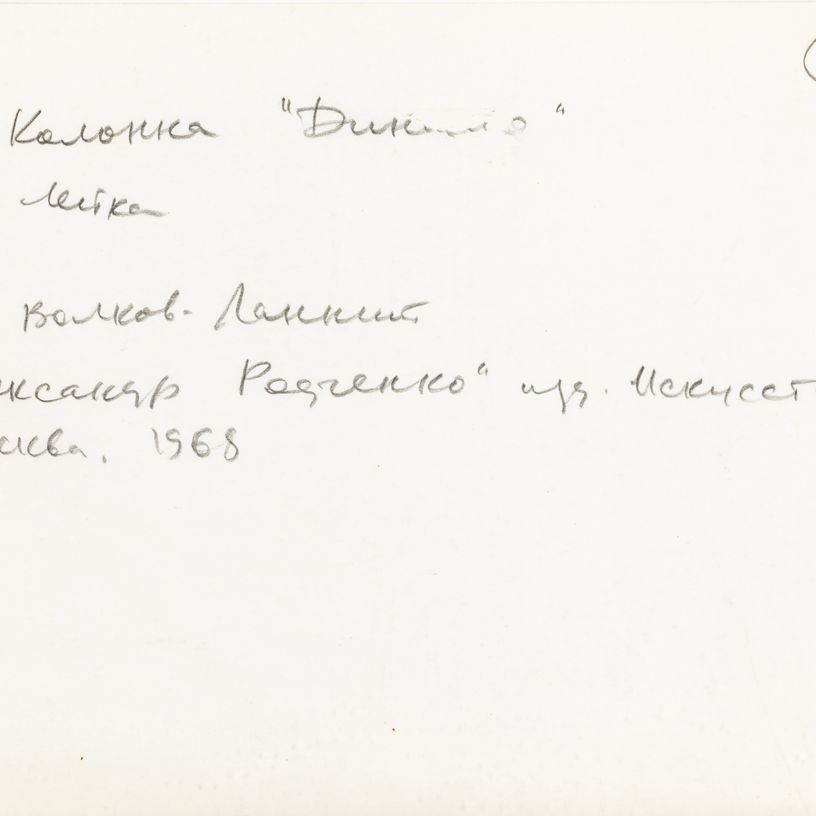 Колонка "Динамо"
Лейка
Волков-Ланнит
ксандр Родченко" изд. Искусст
сква. 1968